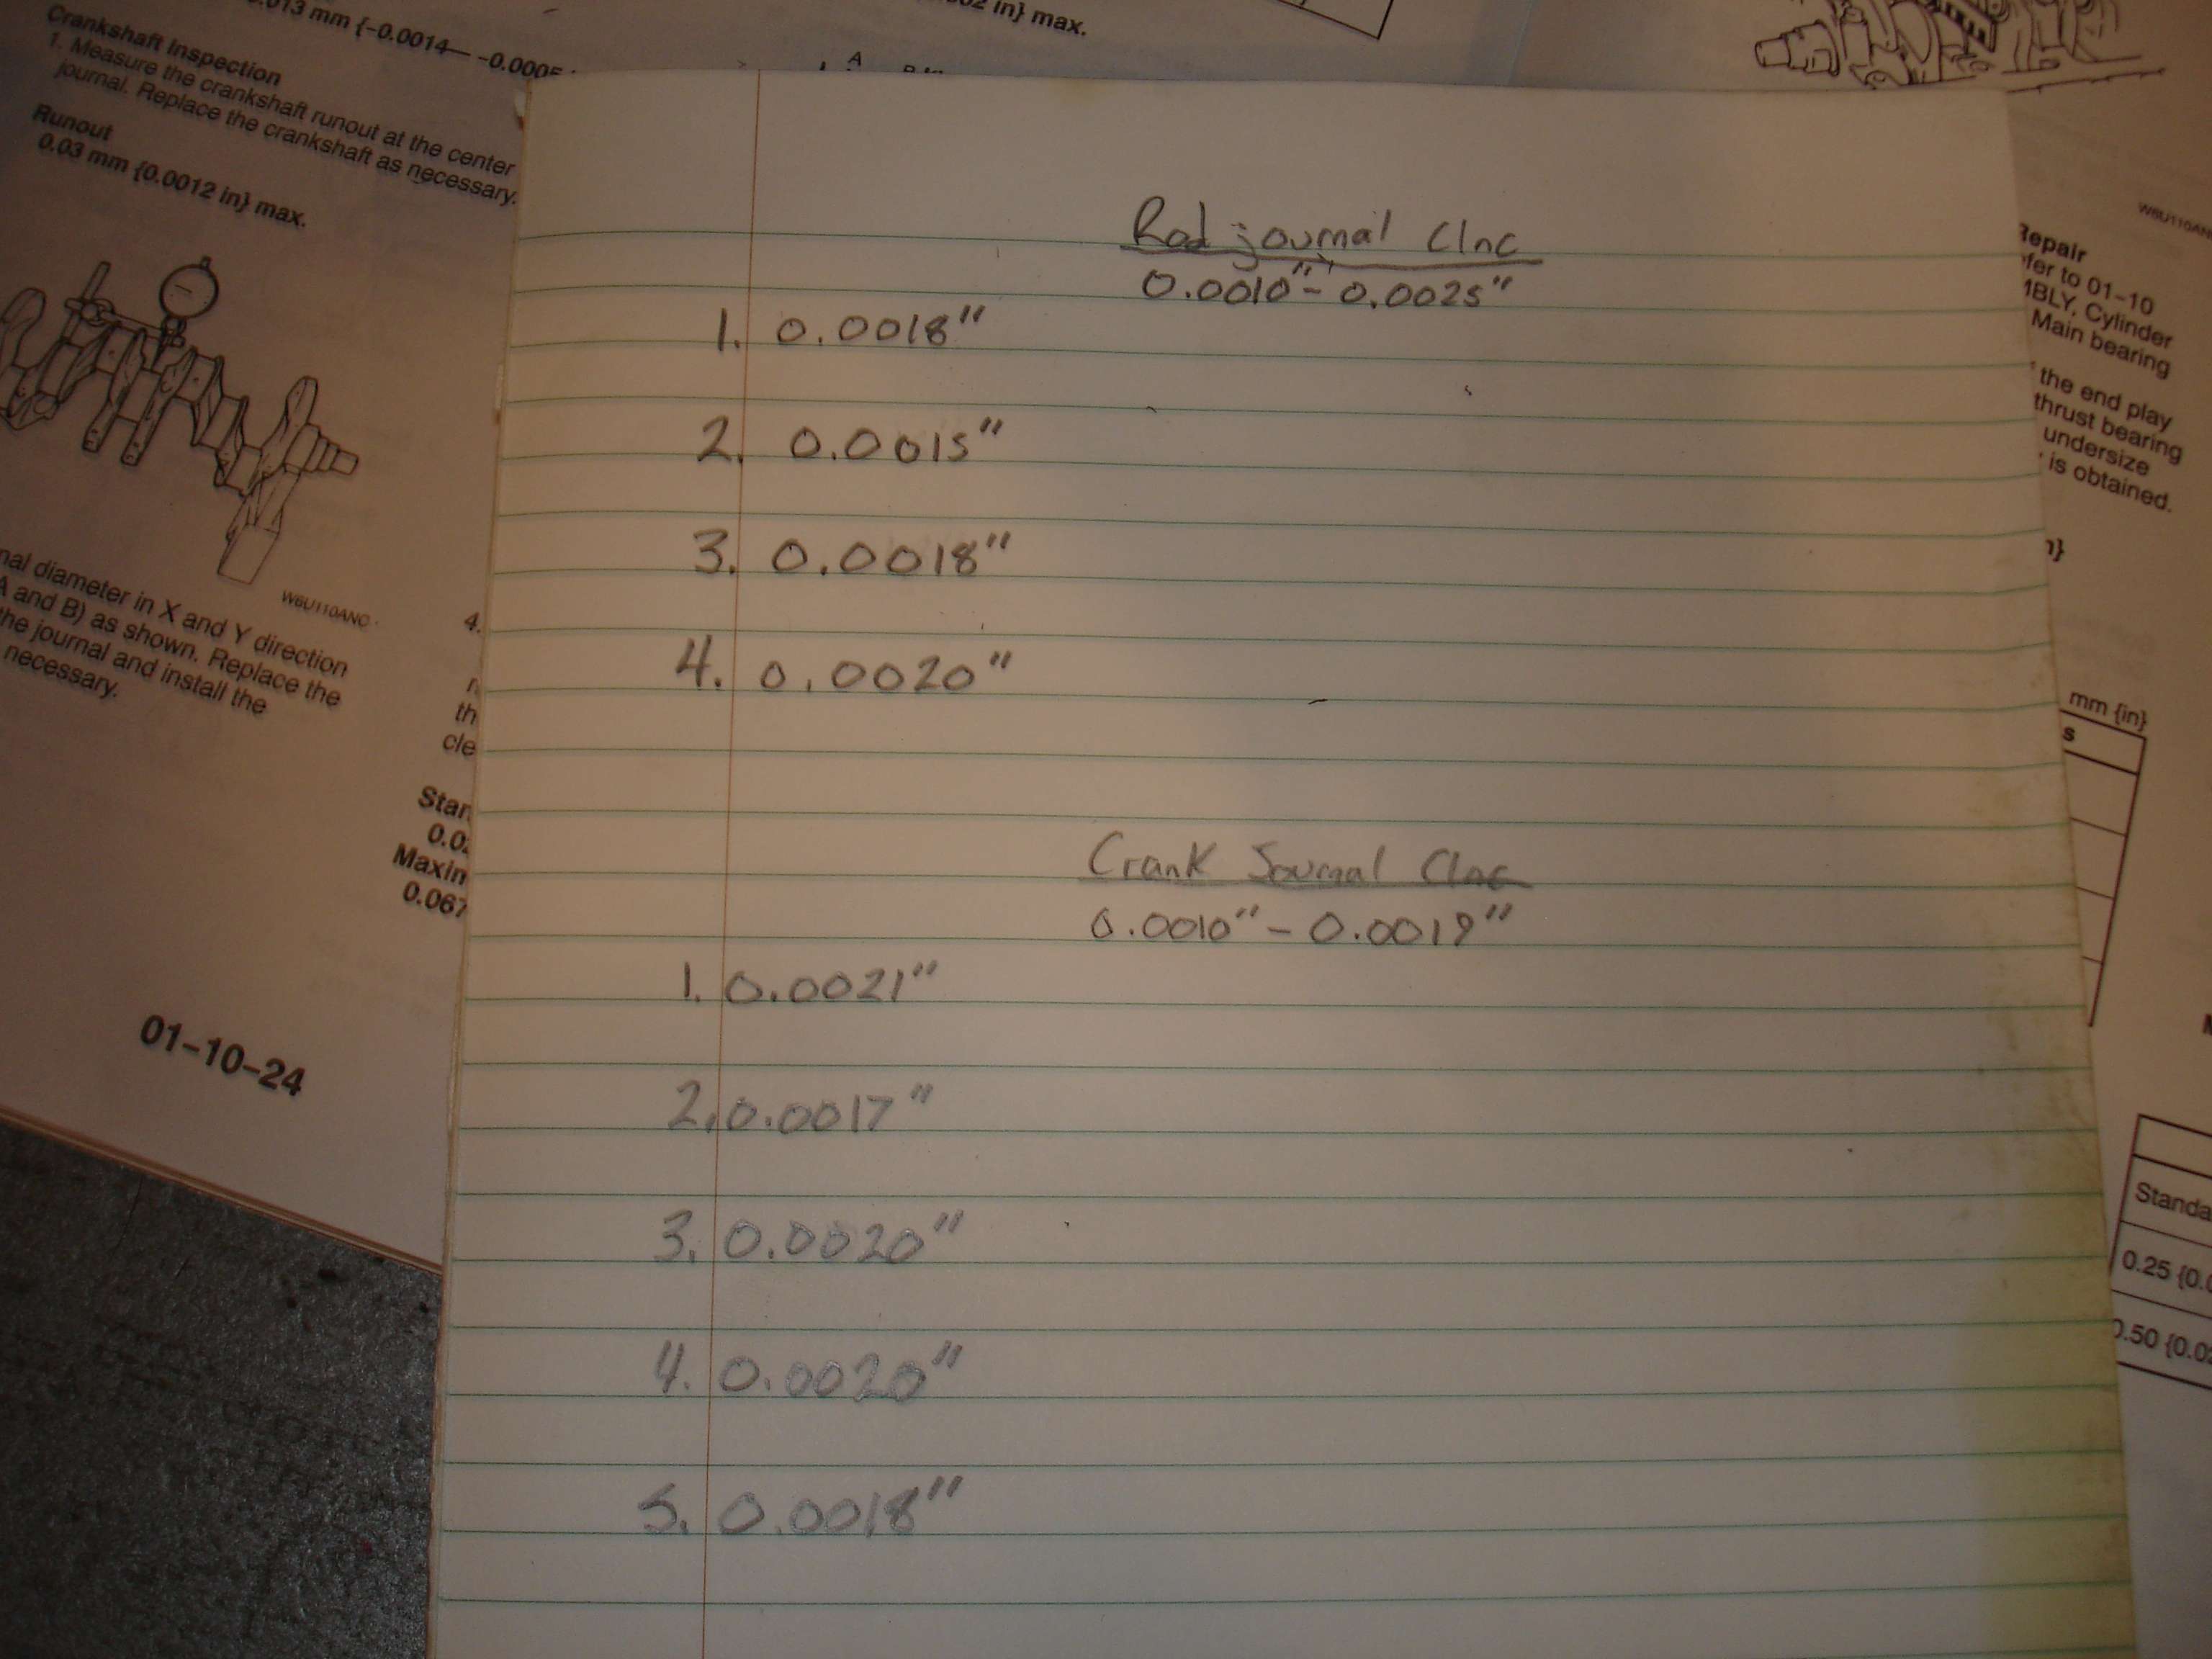 .013 mm {-0.0014— -0.0005
Crankshaft Inspection
1. Measure the crankshaft runout at the center
journal. Replace the crankshaft as necessary.
Runout
0.03 mm {0.0012 in} max.
W6U110ANC
nal diameter in X and Y direction
A and B) as shown. Replace the
the journal and install the
necessary.
01-10-24
in} max.
A
4.
th
cle
Stan
0.0
Maxin
0.067
Rod journal Clnc
0.0010"- 0.0025"
1. 0.0018"
2. 0.0015"
3. 0.0018"
4. 0.0020"
Crank Journal Clnc
0.0010" - 0.0019"
1. 0.0021"
2. 0.0017"
3. 0.0020"
4. 0.0020"
5. 0.0018"
Repair
fer to 01-10
MBLY, Cylinder
Main bearing
the end play
thrust bearing
undersize
is obtained.
mm {in}
s
Standa
0.25 {0.0
0.50 {0.02